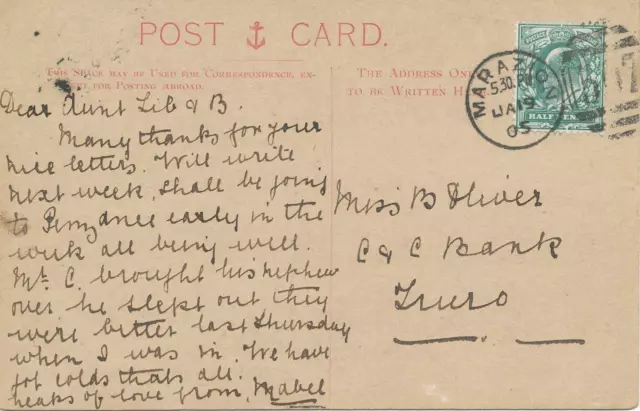 POST CARD.
THIS SPACE MAY BE USED FOR CORRESPONDENCE, EX-
FOR POSTING ABROAD.
THE ADDRESS ONL
TO BE WRITTEN H
MARAZION
5.30 PM
JA 19
05
HALF PEN
Dear Aunt Lib & B.
Many thanks for your
nice letters. Will write
next week, shall be going
to Penzance early in the
week all being well.
Mr. C. brought his nephew
over he slept out they
were better last Thursday
when I was in. We have
got colds thats all.
heaks of love from, Mabel
Miss B Oliver
C & C Bank
Truro